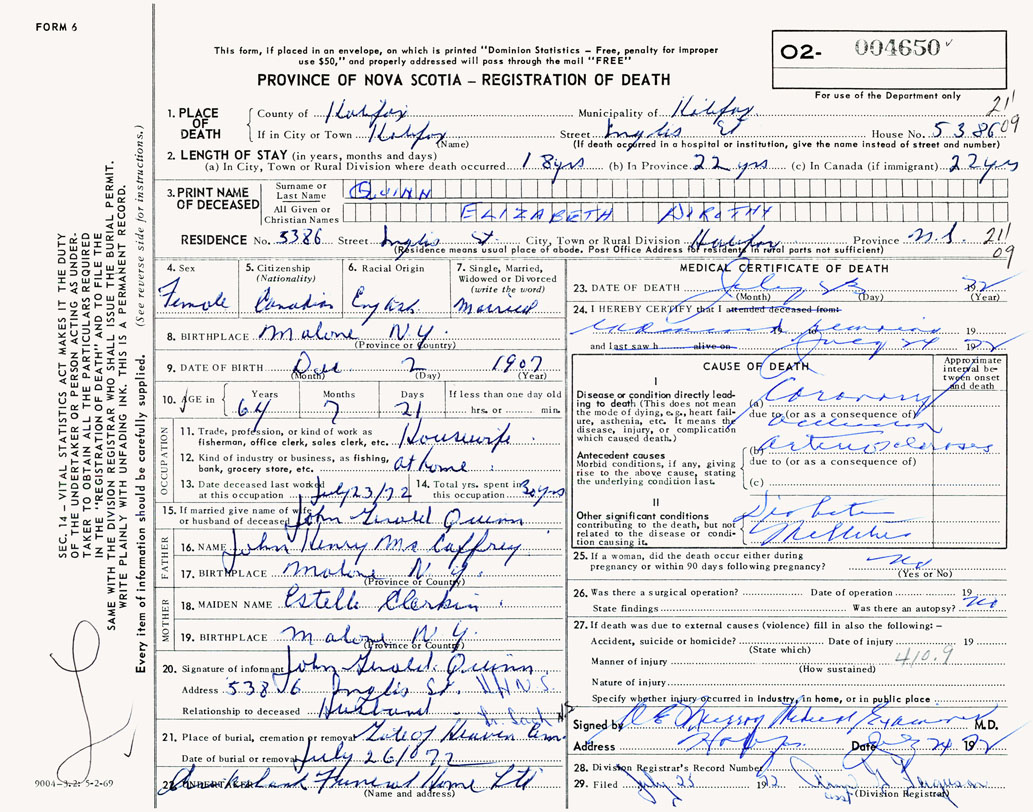 FORM 6
This form, if placed in an envelope, on which is printed "Dominion Statistics – Free, penalty for improper
use $50," and properly addressed will pass through the mail "FREE"
PROVINCE OF NOVA SCOTIA – REGISTRATION OF DEATH
02- 004650
For use of the Department only
211
09
1. PLACE OF DEATH
County of Halifax Municipality of Halifax
If in City or Town Halifax Street Inglis St House No. 5386
(Name) (If death occurred in a hospital or institution, give the name instead of street and number)
2. LENGTH OF STAY (in years, months and days)
(a) In City, Town or Rural Division where death occurred 18 yrs (b) In Province 22 yrs (c) In Canada (if immigrant) 22 yrs
3. PRINT NAME OF DECEASED
Surname or Last Name QUINN
All Given or Christian Names ELIZABETH DOROTHY
RESIDENCE No. 5386 Street Inglis St. City, Town or Rural Division Halifax Province N.S. 211
(Residence means usual place of abode. Post Office Address for residents in rural parts not sufficient) 09
4. Sex
Female
5. Citizenship
(Nationality)
Canadian
6. Racial Origin
English
7. Single, Married,
Widowed or Divorced
(write the word)
Married
8. BIRTHPLACE Malone N.Y.
(Province or Country)
9. DATE OF BIRTH Dec 2 1907
(Month) (Day) (Year)
10. AGE in Years Months Days If less than one day old
64 7 21 hrs. or min.
OCCUPATION
11. Trade, profession, or kind of work as
fisherman, office clerk, sales clerk, etc. Housewife
12. Kind of industry or business, as fishing,
bank, grocery store, etc. at home
13. Date deceased last worked
at this occupation July 23/72
14. Total yrs. spent in
this occupation 30 yrs
15. If married give name of wife
or husband of deceased John Gerald Quinn
FATHER
16. NAME John Henry McCaffrey
17. BIRTHPLACE Malone N.Y.
(Province or Country)
MOTHER
18. MAIDEN NAME Estelle Clerkin
19. BIRTHPLACE Malone N.Y.
(Province or Country)
20. Signature of informant John Gerald Quinn
Address 5386 Inglis St.
Relationship to deceased Husband
Lr. Sack N.S
21. Place of burial, cremation or removal Gate of Heaven Cem.
Date of burial or removal July 26/072
22. UNDERTAKER Funeral Home Ltd
(Name and address)
MEDICAL CERTIFICATE OF DEATH
23. DATE OF DEATH July 23 72
(Month) (Day) (Year)
24. I HEREBY CERTIFY that I attended deceased from
19
and last saw h alive on July 24 1972
CAUSE OF DEATH
Approximate
interval be-
tween onset
and death
I
Disease or condition directly lead-
ing to death (This does not mean
the mode of dying, e.g., heart fail-
ure, asthenia, etc. It means the
disease, injury, or complication
which caused death.)
(a) Coronary
due to (or as a consequence of)
occlusion
Antecedent causes
Morbid conditions, if any, giving
rise to the above cause, stating
the underlying condition last.
(b) arteriosclerosis
due to (or as a consequence of)
(c)
II
Other significant conditions
contributing to the death, but not
related to the disease or condi-
tion causing it.
Diabetes
Mellitus
25. If a woman, did the death occur either during
pregnancy or within 90 days following pregnancy? No
(Yes or No)
26. Was there a surgical operation? Date of operation 19
State findings Was there an autopsy? No
27. If death was due to external causes (violence) fill in also the following: –
Accident, suicide or homicide? Date of injury 19
(State which)
Manner of injury 410.9
(How sustained)
Nature of injury
Specify whether injury occurred in Industry, in home, or in public place
Signed by Murray Medical Examiner M.D.
Address Halifax Date July 24 1972
28. Division Registrar's Record Number
29. Filed July 25 1972
(Division Registrar)
SEC. 14 – VITAL STATISTICS ACT MAKES IT THE DUTY
OF THE UNDERTAKER OR PERSON ACTING AS UNDER-
TAKER TO OBTAIN ALL THE PARTICULARS REQUIRED
IN THE "REGISTRATION OF DEATH" AND TO FILE THE
SAME WITH THE DIVISION REGISTRAR WHO SHALL ISSUE THE BURIAL PERMIT.
WRITE PLAINLY WITH UNFADING INK. THIS IS A PERMANENT RECORD.
Every item of information should be carefully supplied. (See reverse side for instructions.)
9004-3.2: 5-2-69